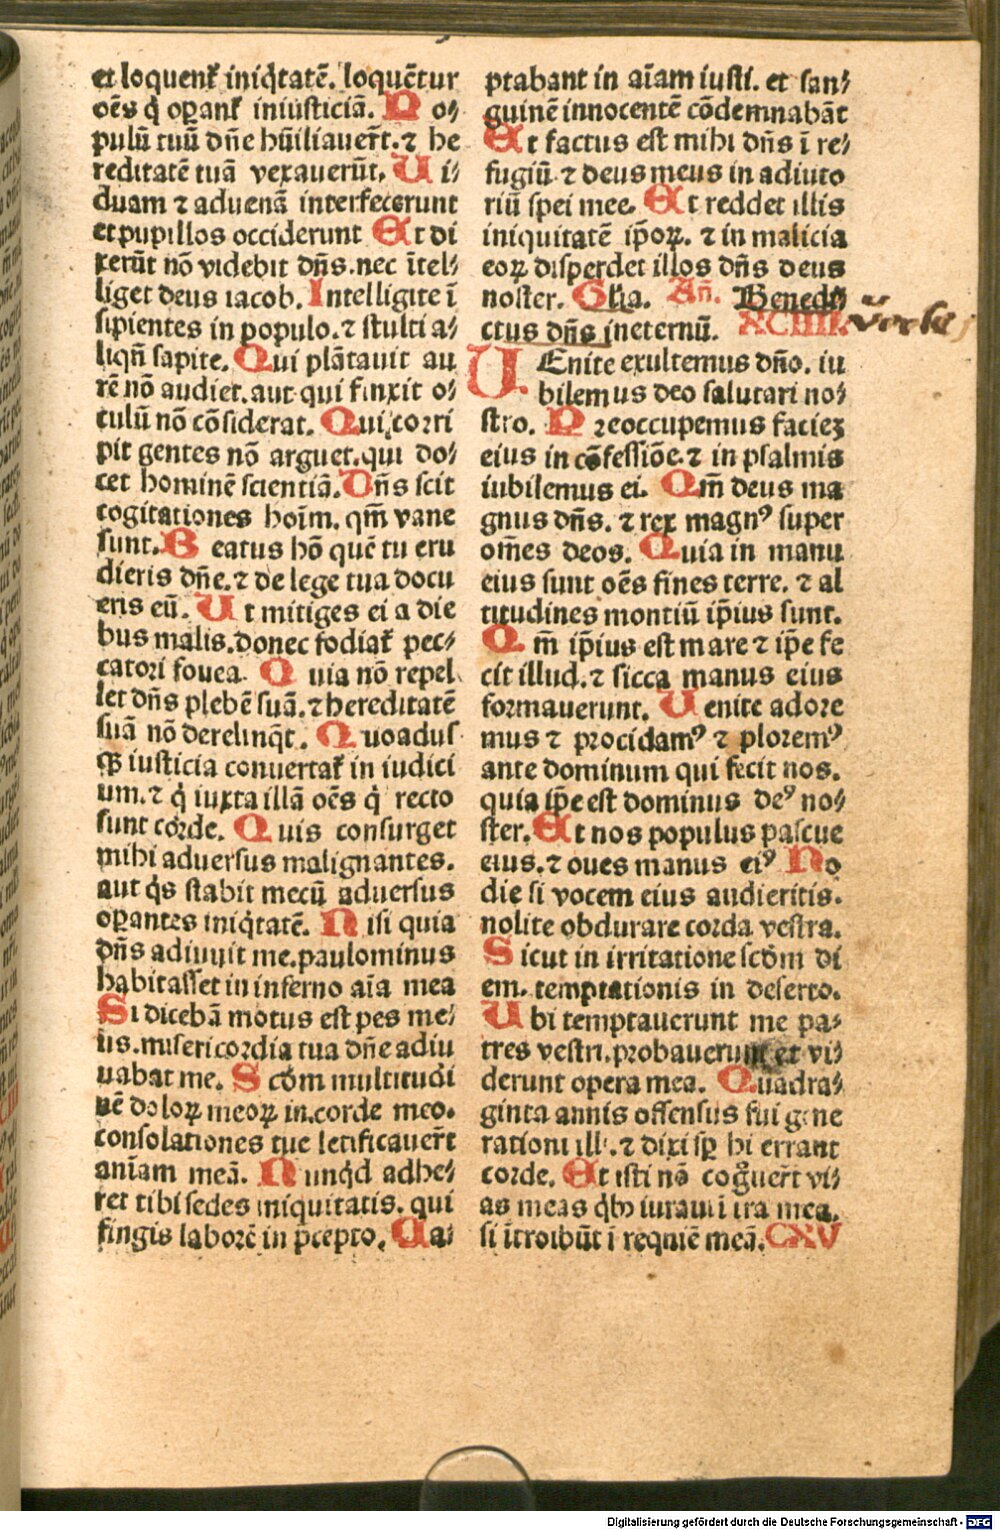 et loquent᷑ iniq̇tatē. loquētur
oēs q̇ oꝑant᷑ iniusticiā. P o⸗
pulū tuū dn̄e hūiliauer̄t. ⁊ he
reditatē tuā vexauerūt. U i⸗
duam ⁊ aduenā interfecerunt
et pupillos occiderunt Et di
xerūt nō videbit dn̄s. nec ītel⸗
liget deus iacob. Intelligite ī
sipientes in populo. ⁊ stulti a⸗
liqn̄ sapite. Qui plātauit au
rē nō audiet. aut qui finxit o⸗
culū nō cōsiderat. Qui corri
pit gentes nō arguet. qui do⸗
cet hominē scientiā. Dn̄s scit
cogitationes hoīm. qm̄ vane
sunt. B eatus hō quē tu eru
dieris dn̄e. ⁊ de lege tua docu
eris eū. U t mitiges ei a die
bus malis. donec fodiat᷑ pec⸗
catori fouea. Q uia nō repel
let dn̄s plebē suā. ⁊ hereditatē
suā nō derelinq̇t. Q uoadus
qꝫ iusticia conuertat᷑ in iudici
um. ⁊ q̇ iuxta illā oēs q̇ recto
sunt corde. Q uis consurget
mihi aduersus malignantes.
aut q̇s stabit mecū aduersus
oꝑantes iniq̇tatē. N isi quia
dn̄s adiuuit me. paulominus
habitasset in inferno aīa mea
Si dicebā motus est pes me⸗
us. misericordia tua dn̄e adiu
uabat me. S cd̄m multitudi
nē doloꝝ meoꝝ in corde meo.
consolationes tue letificauer̄t
animam meā. N unq̇d adhe⸗
ret tibi sedes iniquitatis. qui
fingis laborē in p̄cepto. Ca⸗
ptabant in aīam iusti. et san⸗
guinē innocentē cōdemnabāt
Et factus est mihi dn̄s ī re⸗
fugiū ⁊ deus meus in adiuto
riū spei mee. Et reddet illis
iniquitatē ip̄oꝝ. ⁊ in malicia
eoꝝ disperdet illos dn̄s deus
noster. Gl̄ia. An̄. Benedi
ctus dn̄s ineternū. XCIIII.
UEnite exultemus dn̄o. iu
bilemus deo salutari no⸗
stro. P reoccupemus facieȝ
eius in cōfessiōe. ⁊ in psalmis
iubilemus ei. Qm̄ deus ma
gnus dn̄s. ⁊ rex magnꝰ super
om̄es deos. Quia in manu
eius sunt oēs fines terre. ⁊ al
titudines montiū ip̄ius sunt.
Q m̄ ip̄ius est mare ⁊ ip̄e fe
cit illud. ⁊ sicca manus eius
formauerunt. U enite adore
mus ⁊ procidamꝰ ⁊ ploremꝰ
ante dominum qui fecit nos.
quia ip̄e est dominus deꝰ no⸗
ster. Et nos populus pascue
eius. ⁊ oues manus eiꝰ Ho
die si vocem eius audieritis.
nolite obdurare corda vestra.
S icut in irritatione scd̄m di
em. temptationis in deserto.
U bi temptauerunt me pa⸗
tres vestri. probauerunt et vi⸗
derunt opera mea. Quadra⸗
ginta annis offensus fui gene
rationi illi. ⁊ dixi sꝑ hi errant
corde. Et isti nō coguer̄t vi⸗
as meas q̇bꝰ iuraui i ira mea.
si ītroibūt i requiē meā. CXV
Digitalisierung gefördert durch die Deutsche Forschungsgemeinschaft - DFG